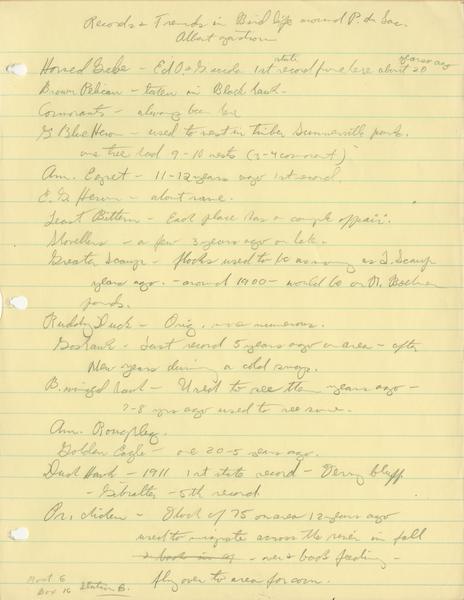 Records & Trends in Bird life around P. du Sac.
Albert Gastrow
Horned Grebe - Ed O. & 1st state record from here about 20 years ago
Brown Pelican - taken in Black hawk -
Cormorants - always been
G Blue Heron - used to nest in timber park.
one tree had 9-10 nests (3-4 cormorant)
Am. Egret - 11-12 years ago 1st record.
E. G. Heron - about rare.
Least Bittern - Each place has a couple of pair.
Shovellers - a few 3 years ago or late.
Greater Scaup - flocks used to be as many as L. Scaup
years ago. - around 1900 - would be on
ponds.
Ruddy Duck - Orig. numerous.
Goshawk - last record 5 years ago on area - after
New years during a cold snap.
B. winged hawk - Used to see them years ago -
7-8 yrs ago used to see some.
Am. Roughleg.
Golden Eagle - one 20-5 years ago.
Duck Hawk - 1911 1st state record - bluff
- Gibraltar - 5th record
Pr. chicken - Flock of 75 on area 12 years ago
used to migrate across the river in fall
& back in - river & back feeding -
fly over to area for corn.
6
Box 16 Station B.